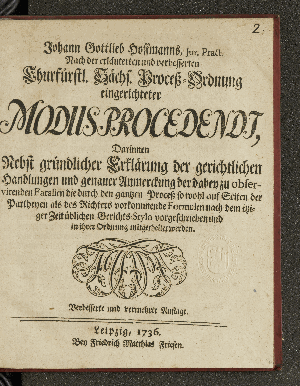 2.
Johann Gottlieb Hoffmanns, Jur. Pract.
Nach der erläuterten und verbesserten
Churfürstl. Sächs. Proceß-Ordnung
eingerichteter
MODUS PROCEDENDI,
Darinnen
Nebst gründlicher Erklärung der gerichtlichen
Handlungen und genauer Anmerckung der dabey zu obser-
virenden Fatalien die durch den gantzen Proceß so wohl auf Seiten der
Partheyen als des Richters vorkommende Formulen nach dem itzi-
ger Zeit üblichen Gerichts-Stylo vorgeschrieben und
in ihrer Ordnung mitgetheilet werden.
Verbesserte und vermehrte Auflage.
Leipzig, 1736.
Bey Friedrich Matthias Friesen.